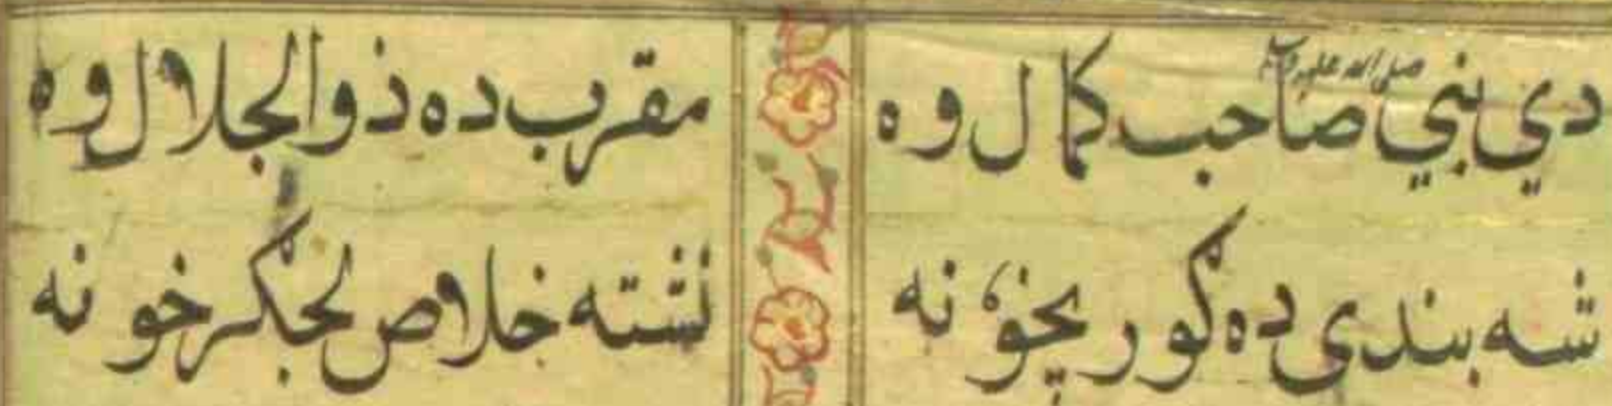 دي نبي صلی الله علیه وسلم صاحب کمال وه مقرب ده ذوالجلال وه
شه بندی ده کور نشته خلاص لجکر خونه